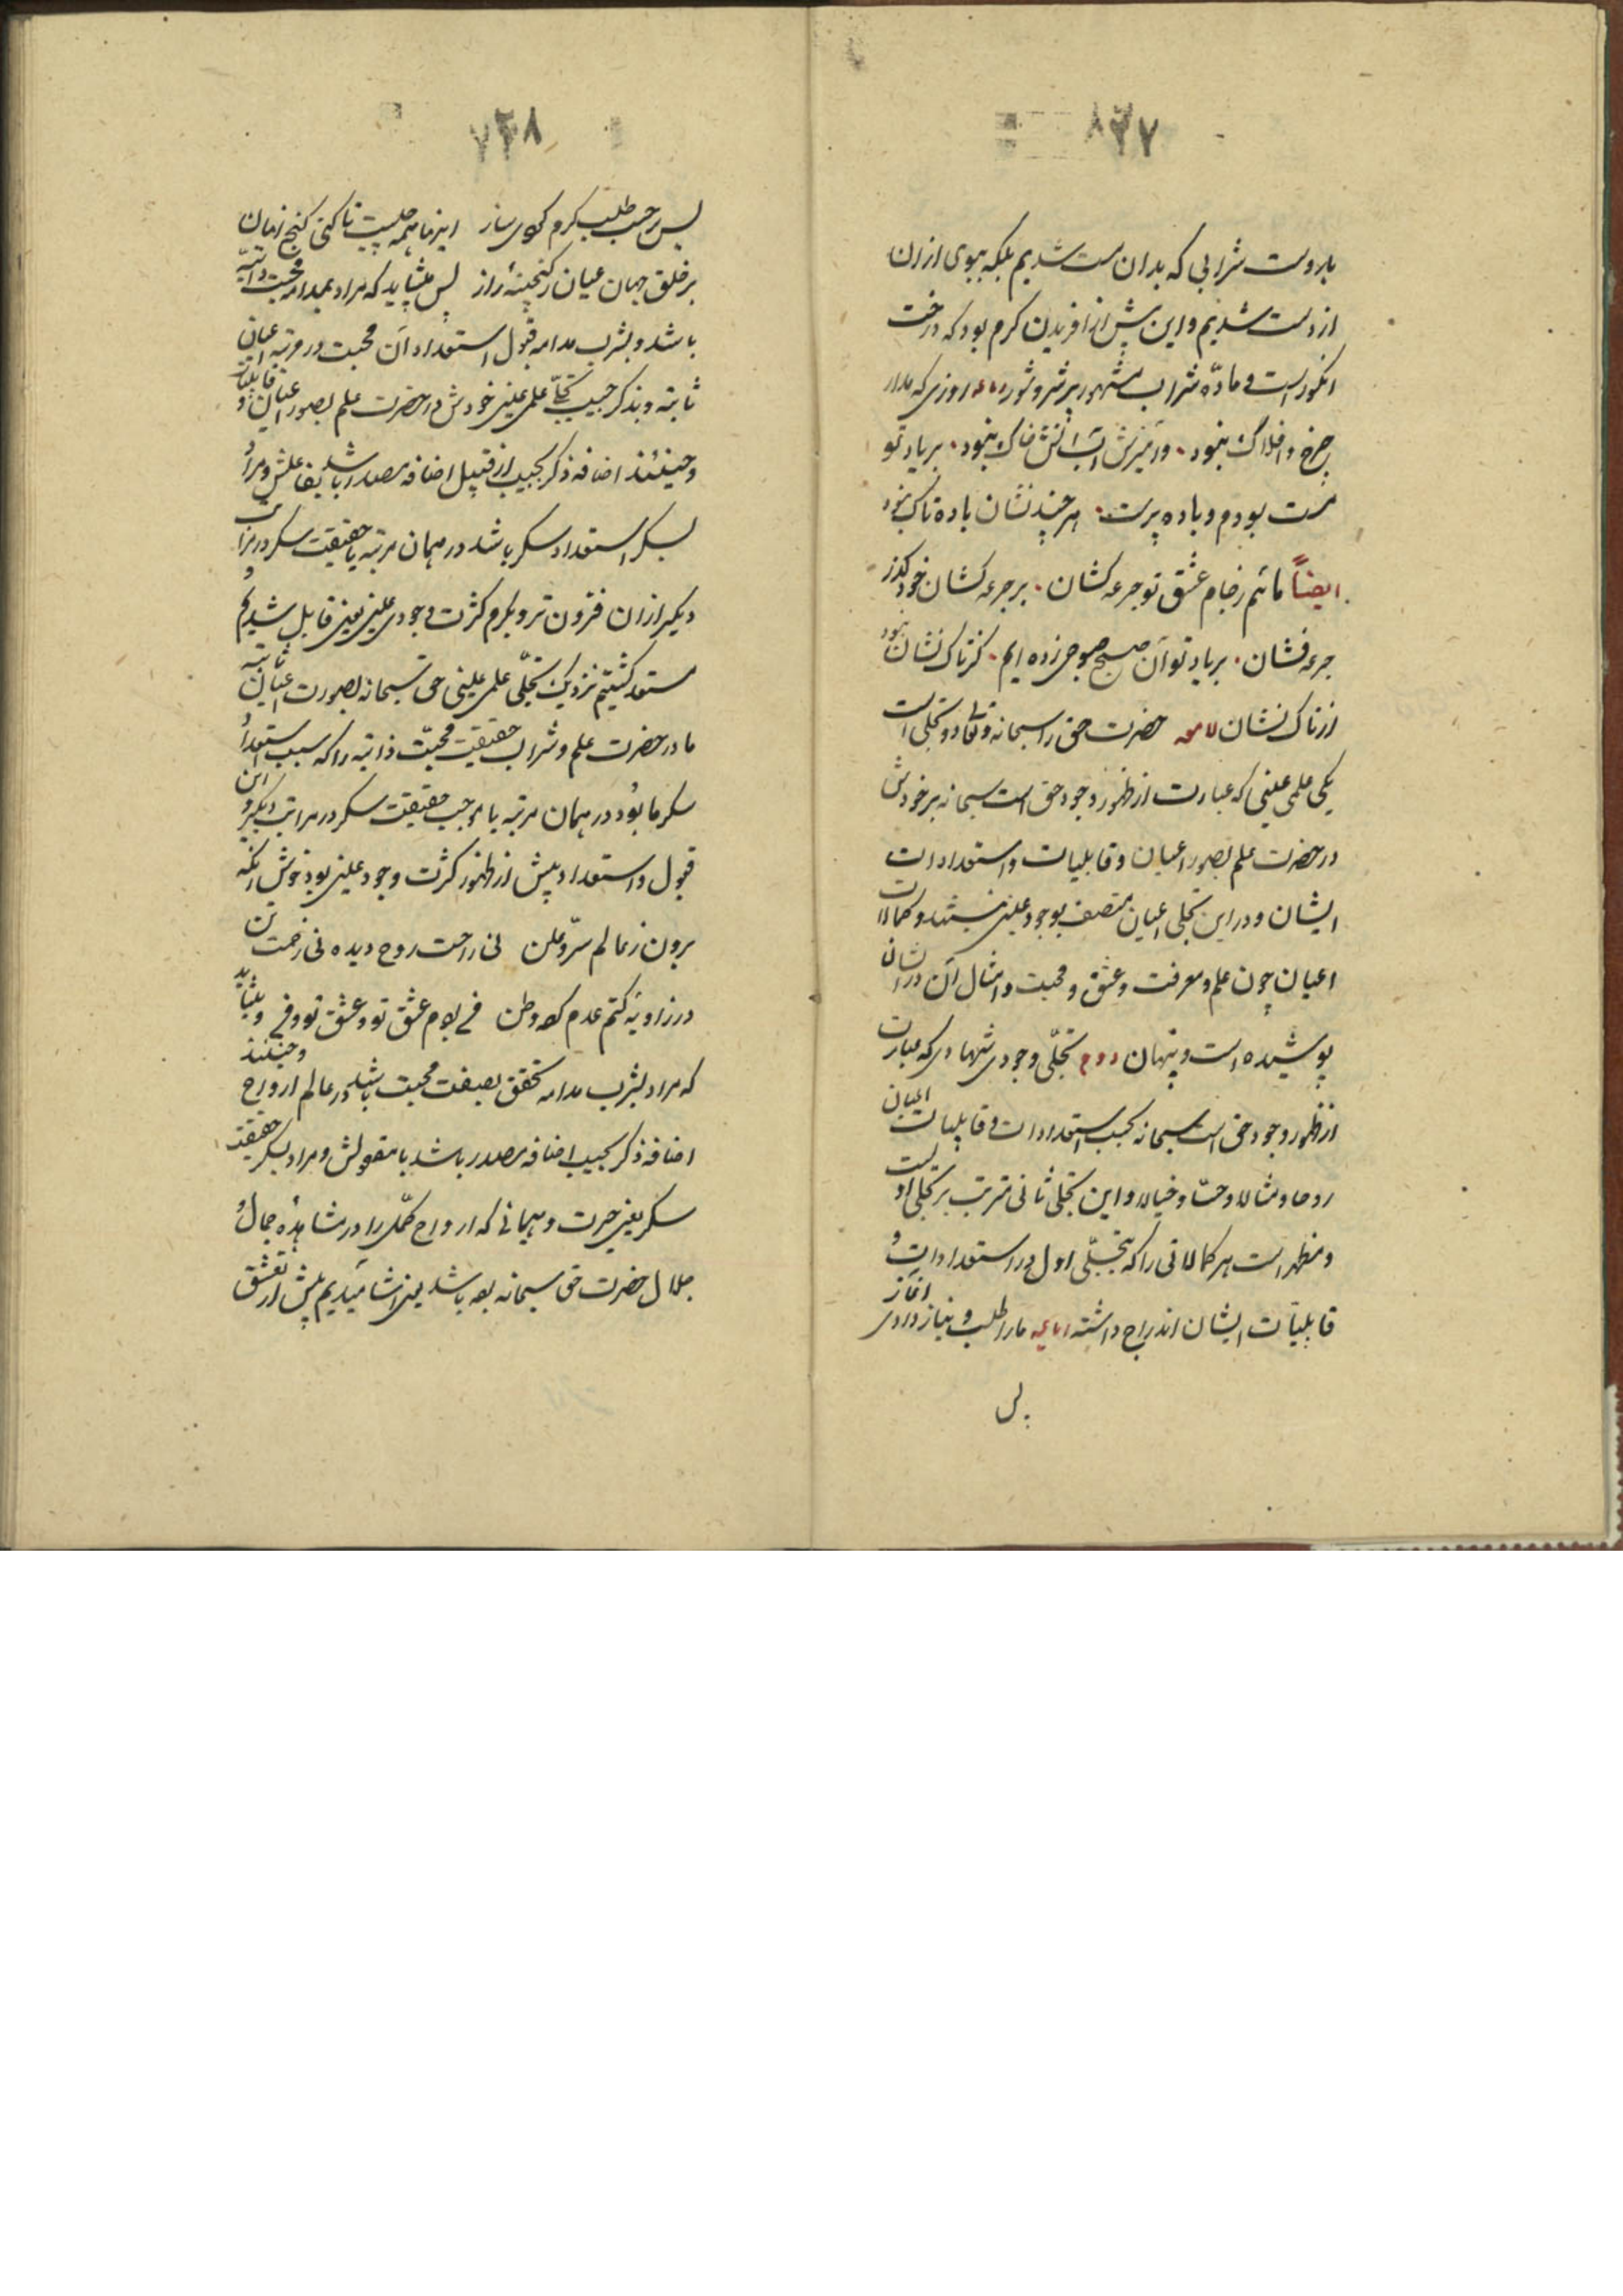 ۸۳۷
یا دوست شرابی که بدان مست شدیم بلکه ببوی ازان
از دست شدیم و این پیش از آفریدن کرم بود که درخت
انگورست و ماده شراب مشهور پر شر و شور رباعیه روزی که مدار
چرخ و افلاک نبود • وامیزش آب و آتش و خاک نبود • بر یاد تو
مست بودم و باده پرست • هر چند نشان باده و تاک نبود
ایضاً مائیم ز جام عشق تو جرعه کشان • بر جرعه کشان خود گذر
جرعه فشان • بر یاد تو آن صبح صبوحی زده ایم • کز تاک نشان نبود
از تاک نشان لامعه حضرت حق را سبحانه و تعالی دو تجلی است
یکی علمی غیبی که عبارت از ظهور وجود حق است سبحانه بر خودش
در حضرت علم بصور اعیان و قابلیات و استعدادات
ایشان و در این تجلی اعیان متصف بوجود عینی نیستند و کمالات
اعیان چون علم و معرفت و عشق و محبت و امثال آن در ایشان
پوشیده است و پنهان دوم تجلی وجودی شهادی که عبارت
از ظهور وجود حق است سبحانه بحسب استعدادات و قابلیات اعیان
روحا و مثالا و حسا و خیالا و این تجلی ثانی مترتب بر تجلی اولست
و مظهر است هر کمالاتی را که بتجلی اول در استعدادات و
قابلیات ایشان اندراج داشته رباعیه ما را طلب و نیاز دادی ز آغاز
پس
۷۳۸
پس بر حسب طلب کرم کردی ساز اینها همه چیست تا کنی گنج نهان
بر خلق جهان عیان ز گنجینهٔ راز پس میشاید که مراد بمدامه محبت ذاتیه
باشد و بشرب مدامه قبول استعداد آن محبت در مرتبه اعیان
ثابته و بذکر حبیب تجلی علمی غیبی خودش در حضرت علم بصور اعیان و قابلیات
و حینئذ اضافه ذکر بحبیب از قبیل اضافه مصدر باشد بفاعلش و مراد
بسکر استعداد سکر باشد در همان مرتبه یا حقیقت سکر در مراتب
دیگر ازان فروتر و بکرم کثرت وجودی عینی یعنی قابل شدیم و
مستعد گشتیم نزدیک تجلی علمی غیبی حق سبحانه بصورت اعیان ثابته
ما در حضرت علم و شراب حقیقت محبت ذاتیه را که سبب استعداد
سکر ما بود در همان مرتبه یا موجب حقیقت سکر در مراتب دیگر و این
قبول و استعداد پیش از ظهور کثرت وجود عینی بود خوش آنکه
برون ز عالم سر و علن نی راحت روح دیده نی زحمت تن
در زاویهٔ کتم عدم کرده وطن من بودم عشق تو و عشق تو و من و میشاید
که مراد بشرب مدامه تحقق بصفت محبت باشد در عالم ارواح و حینئذ
اضافه ذکر بحبیب اضافه مصدر باشد با مفعولش و مراد بسکر حقیقت
سکر یعنی حیرت و هیمانی که ارواح کمل را در مشاهدهٔ جمال و
جلال حضرت حق سبحانه بوده باشد یعنی آشامیدیم پیش از تعشق